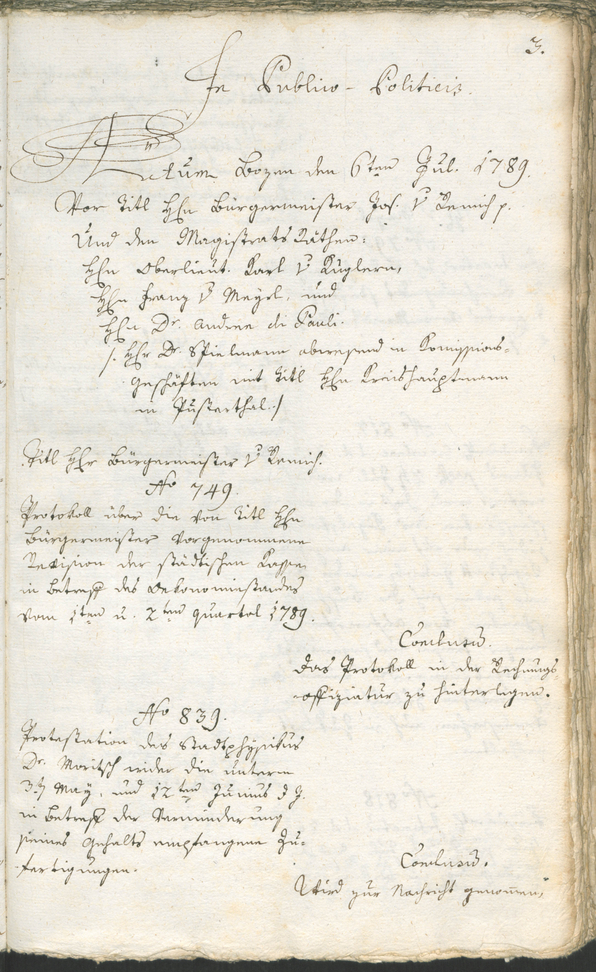 3.
In Publico-Politicis.
Actum Bozen den 6ten Jul. 1789.
Vor Titl Hhn Bürgermeister Jos. v Remich p.
Und den Magistrats Räthen:
Hhn Oberlieut. Karl v Küglern,
Hhn Franz v Mayrl, und
Hhn Dr. Andree di Pauli.
/: Hhr Dr. Spielmann abwesend in Komissions-
geschäften mit Titl Hhn Kreishauptmann
in Pusterthal :/
Titl Hhr Bürgermeister v Remich.
No 749.
Protokoll über die von Titl Hhn
Bürgermeister vorgenommene
Revision der städtischen Kassen
in Betreff des Oekonomiestandes
vom 1ten u. 2ten Quartal 1789.
Conclusum.
Das Protokoll in der Rechnungs-
offiziatur zu hinterlegen.
No 839.
Protestation des Stadtphysikus
Dr. Moritsch wider die unterm
May, und 12ten Junius d J.
in Betreff der Verminderung
seines Gehalts empfangene Zu-
fertigungen.
Conclusum.
Wird zur Nachricht genommen,